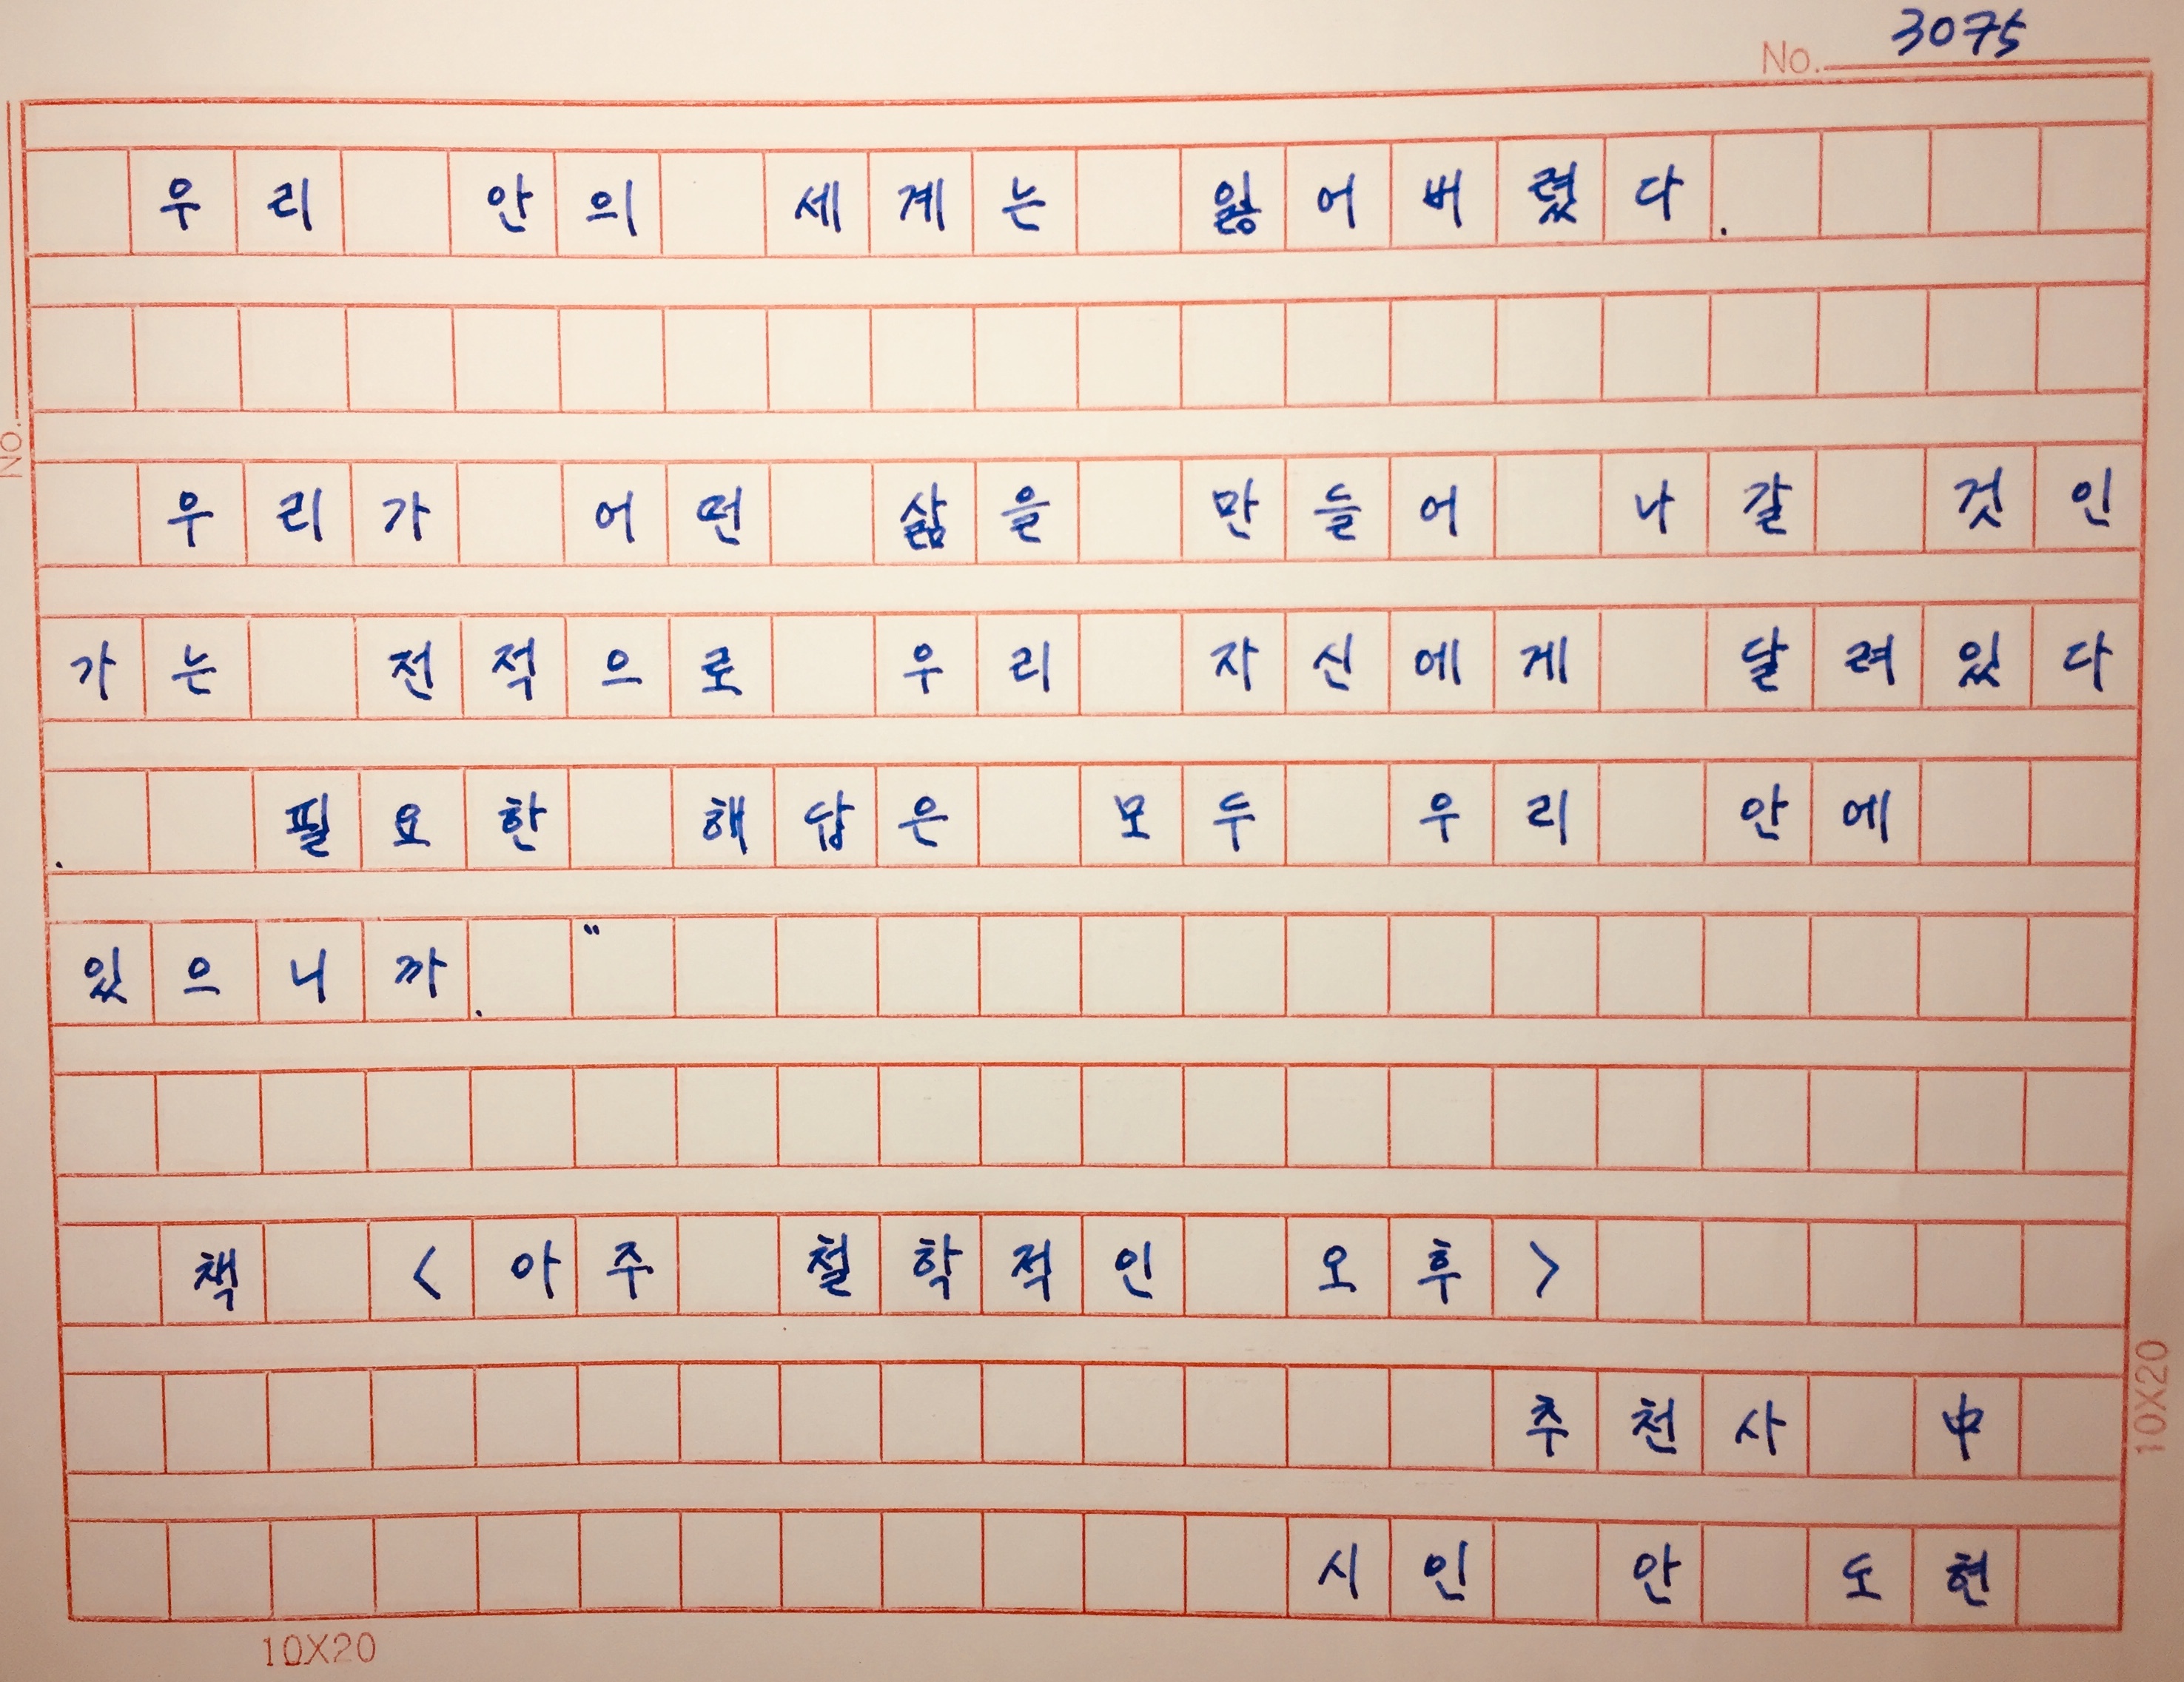 No. 3075
우리 안의 세계는 잃어버렸다.
우리가 어떤 삶을 만들어 나갈 것인
가는 전적으로 우리 자신에게 달려있다
. 필요한 해답은 모두 우리 안에
있으니까."
책 <아주 철학적인 오후>
추천사 中
시인 안 도현
No.
10X20
10X20